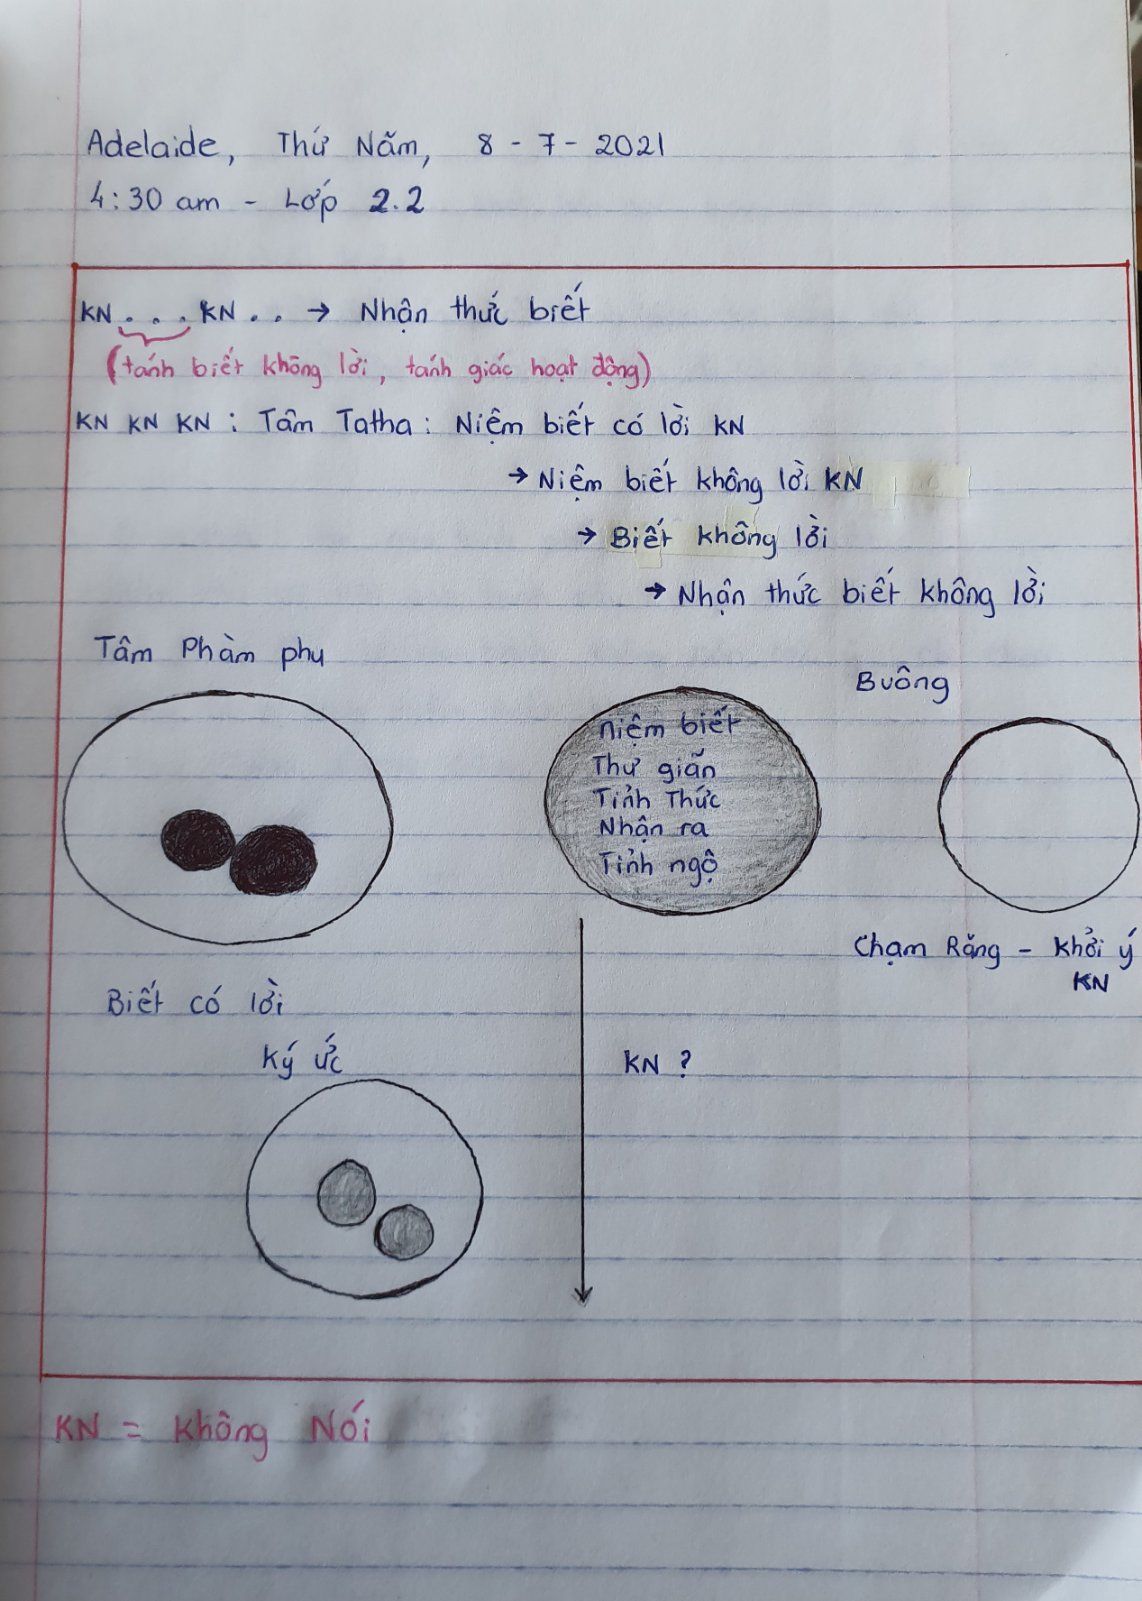 Adelaide, Thứ Năm, 8 - 7 - 2021
4:30 am - Lớp 2.2
KN . . . KN . . → Nhận thức biết
(tánh biết không lời, tánh giác hoạt động)
KN KN KN : Tâm Tatha : Niệm biết có lời KN
→ Niệm biết không lời KN
→ Biết không lời
→ Nhận thức biết không lời
Tâm Phàm phu
Buông
Niệm biết
Thư giãn
Tỉnh Thức
Nhận ra
Tỉnh ngộ
Chạm Răng - Khởi ý
KN
Biết có lời
Ký ức
KN ?
KN = Không Nói